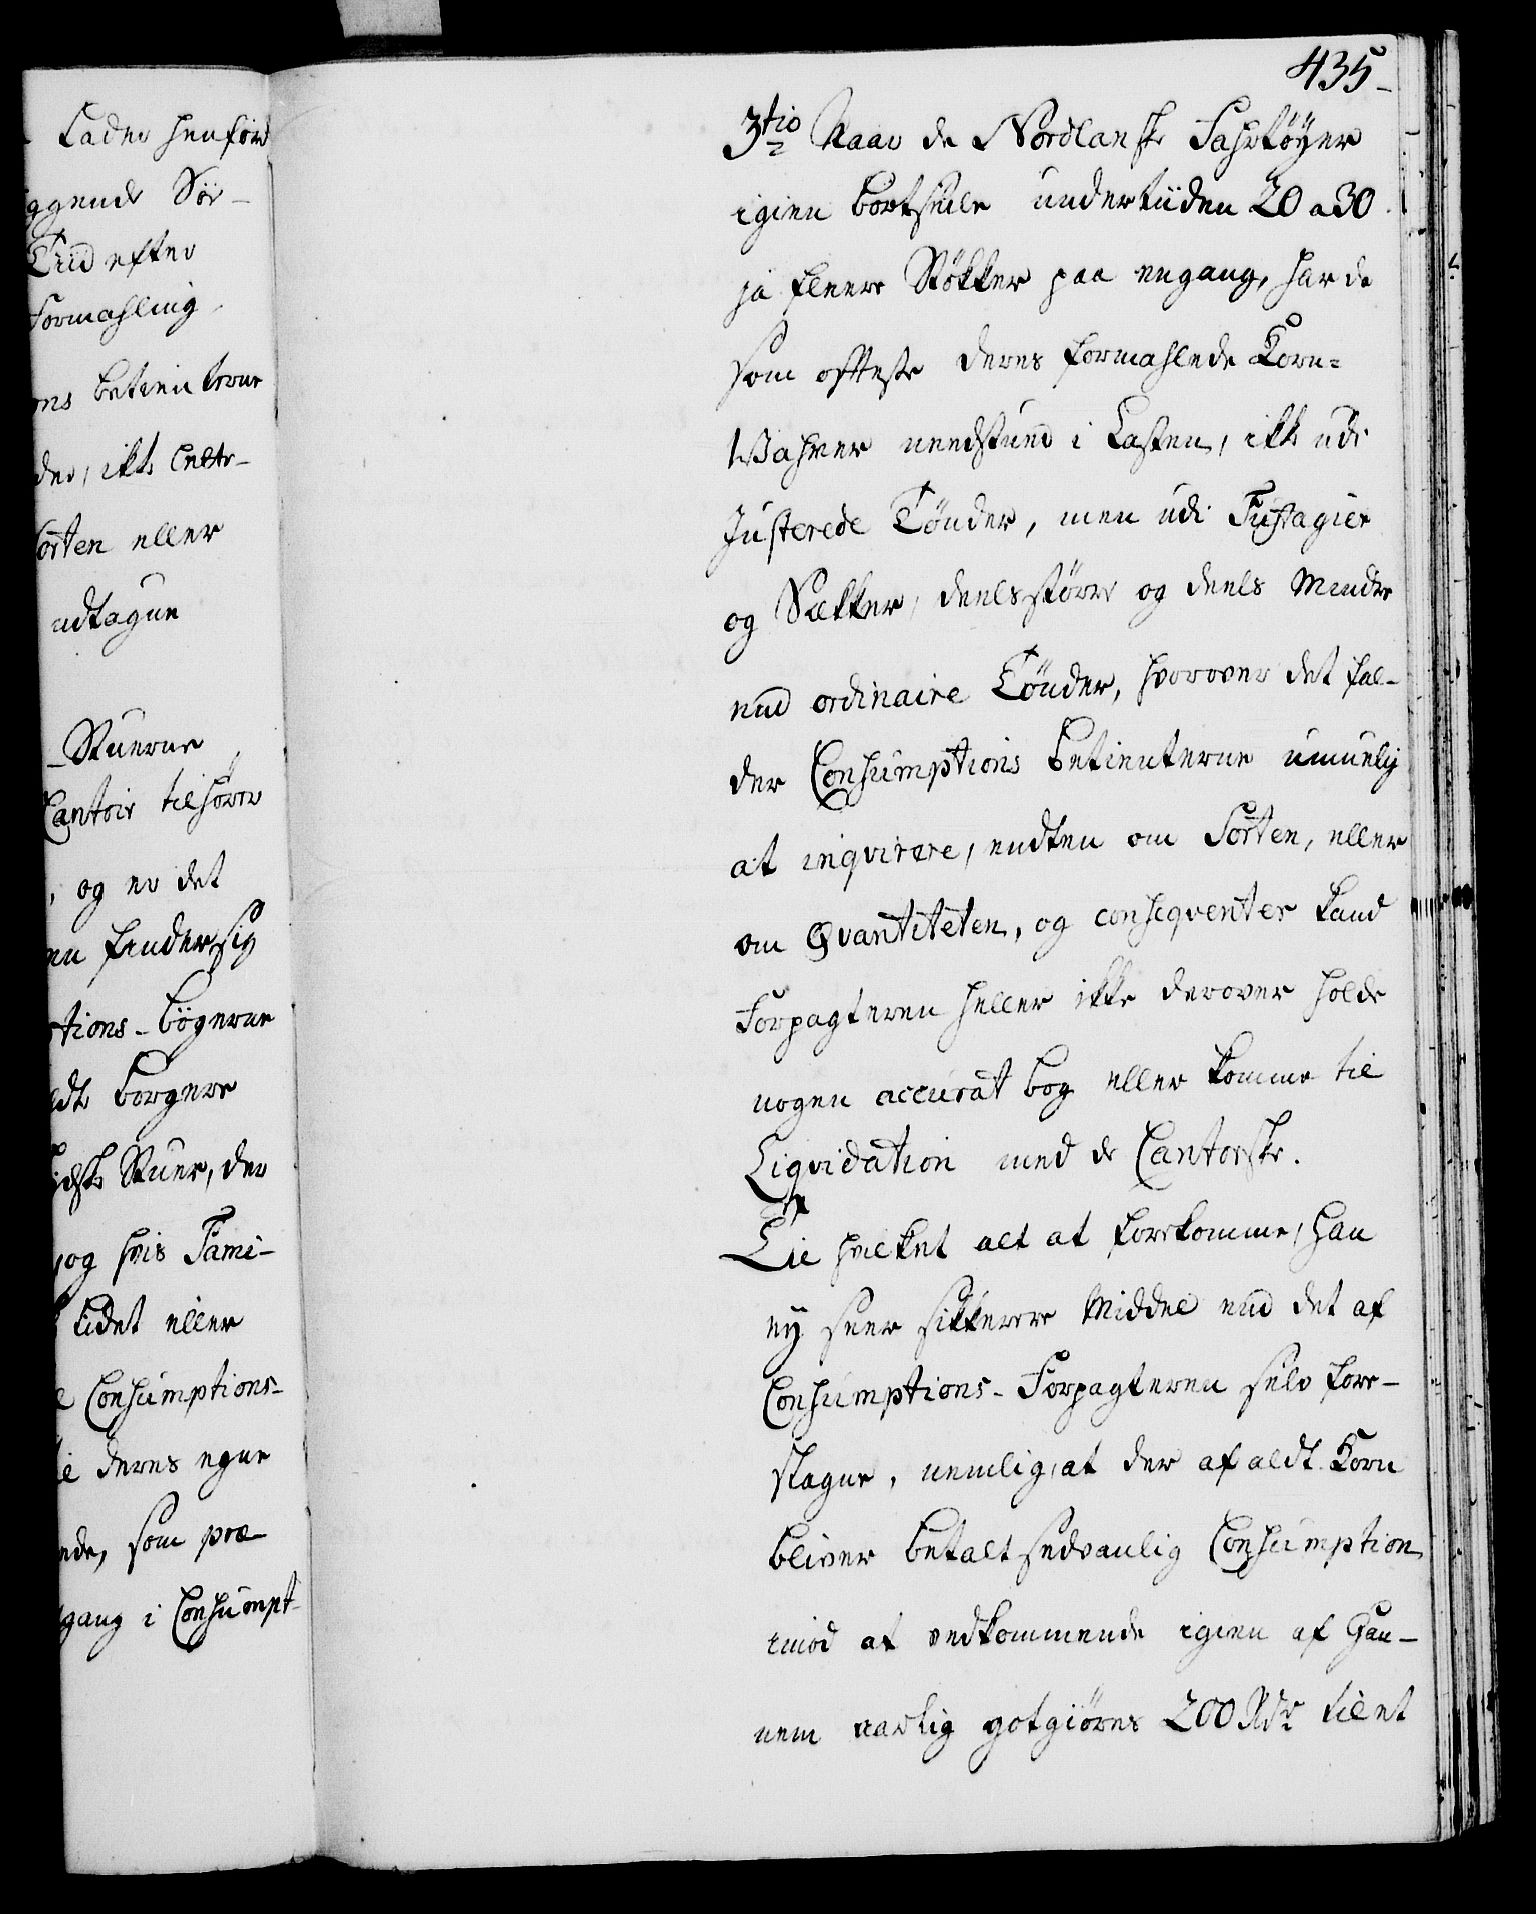 Lader henføre
ggende Sør-
Tiid efter
Formahling
ons betienterne
der, ikke lette-
Sorten eller
udtagne
Stuerne
Cantoir tilhører
, og er det
en finder sig
tions-bøgerne
ldte borgere
ydske Stuer, der
og hvis Fami-
tidet eller
Consumptions-
deres egne
ende, som præ-
gang i Consumpt-
435-
3tio Naar de Nordlanske Fahrtøyer
igien bortseile undertiiden 20 a 30.
ja fleere Støkker paa engang, har de
som oftest deres formahlede Korn-
Wahrer needstund i Lasten, ikke udi
Justerede Tønder, men udi Fustagier
og Sækker, deels større og deels Mindre
end ordinaire Tønder, hvorover det fal-
der Consumptions betienterne umuelig
at inqvirere, endten om Sorten, eller
om Qvantiteten, og conseqventer kand
Forpagteren heller ikke derover holde
nogen accurat bog eller komme til
Liqvidation med de Cantorske.
Til hvilket alt at forekomme, han
ey seer sikkerere Middel end det af
Consumptions-Forpagteren selv fore-
slagne, nemlig, at der af aldt Korn
bliver betalt sedvanlig Consumption
imod at vedkommende igien af Gan-
nem aarlig godtgiøres 200 Rdr til et